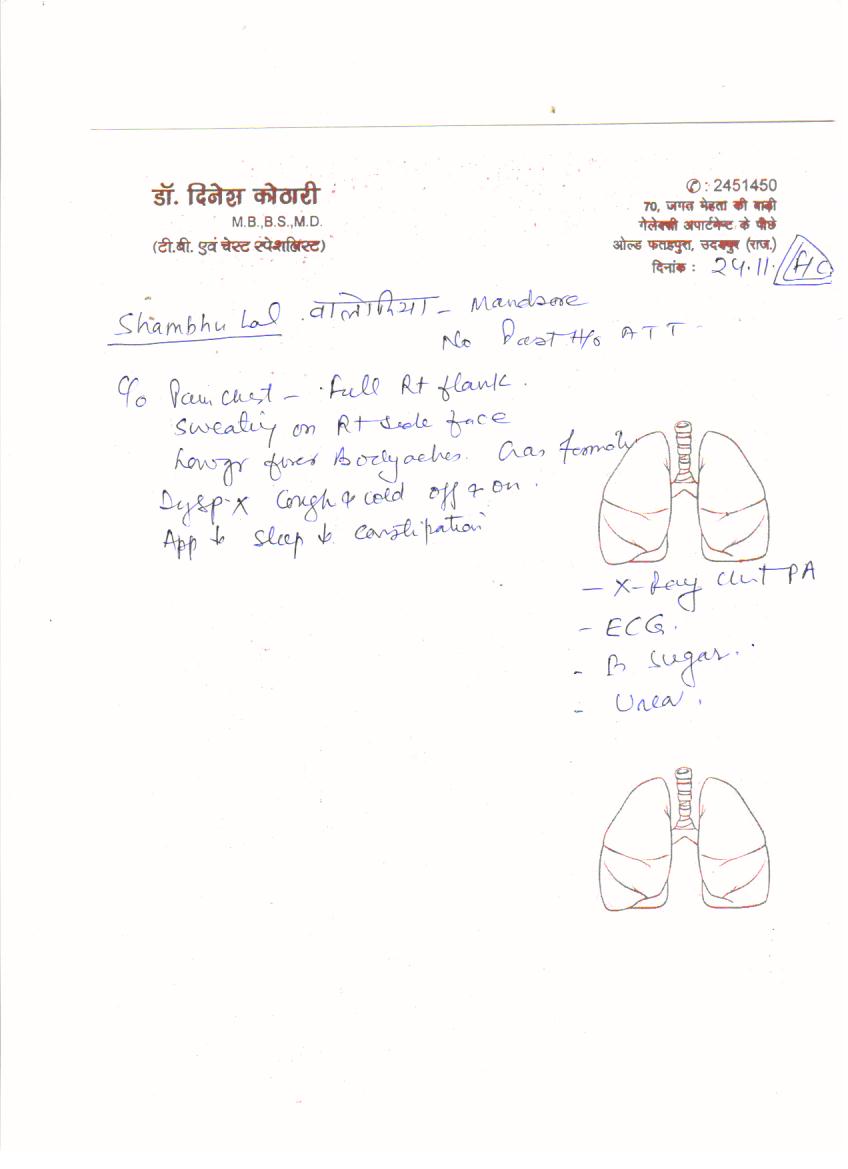 डॉ. दिनेश कोठारी
M.B.,B.S.,M.D.
(टी.बी. एवं चेस्ट स्पेशलिस्ट)
✆: 2451450
70, जगत मेहता की बाड़ी
गेलेक्सी अपार्टमेन्ट के पीछे
ओल्ड फतहपुरा, उदयपुर (राज.)
दिनांक : 24.11.
Shambhu Lal - Mandsore
No Past H/o ATT -
C/o Pain chest - Full Rt flank.
Sweating on Rt side face
Lowgr fever Bodyaches. Gas
Dysp-x Cough & cold off & on.
App ↓ Sleep ↓ Constipation
- X-Ray Chest PA
- ECG.
- B Sugar.
- Urea.